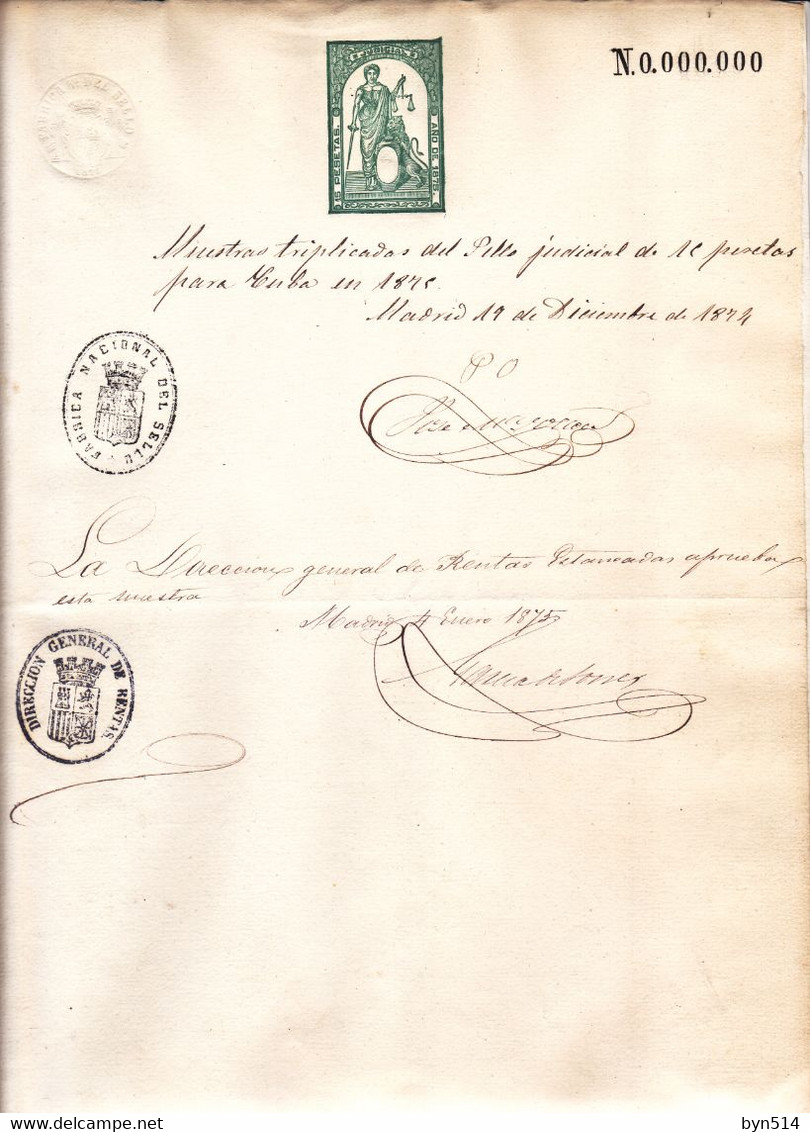 N.0.000.000
JUDICIAL
15 PESETAS.
AÑO DE 1875.
Muestras triplicadas del Sello judicial de 15 pesetas
para Cuba en 1875
Madrid 19 de Diciembre de 1874
P O
FABRICA NACIONAL DEL SELLO
La Direccion general de Rentas Estancadas aprueba
esta muestra
Madrid 4 Enero 1875
DIRECCION GENERAL DE RENTAS.
byn514